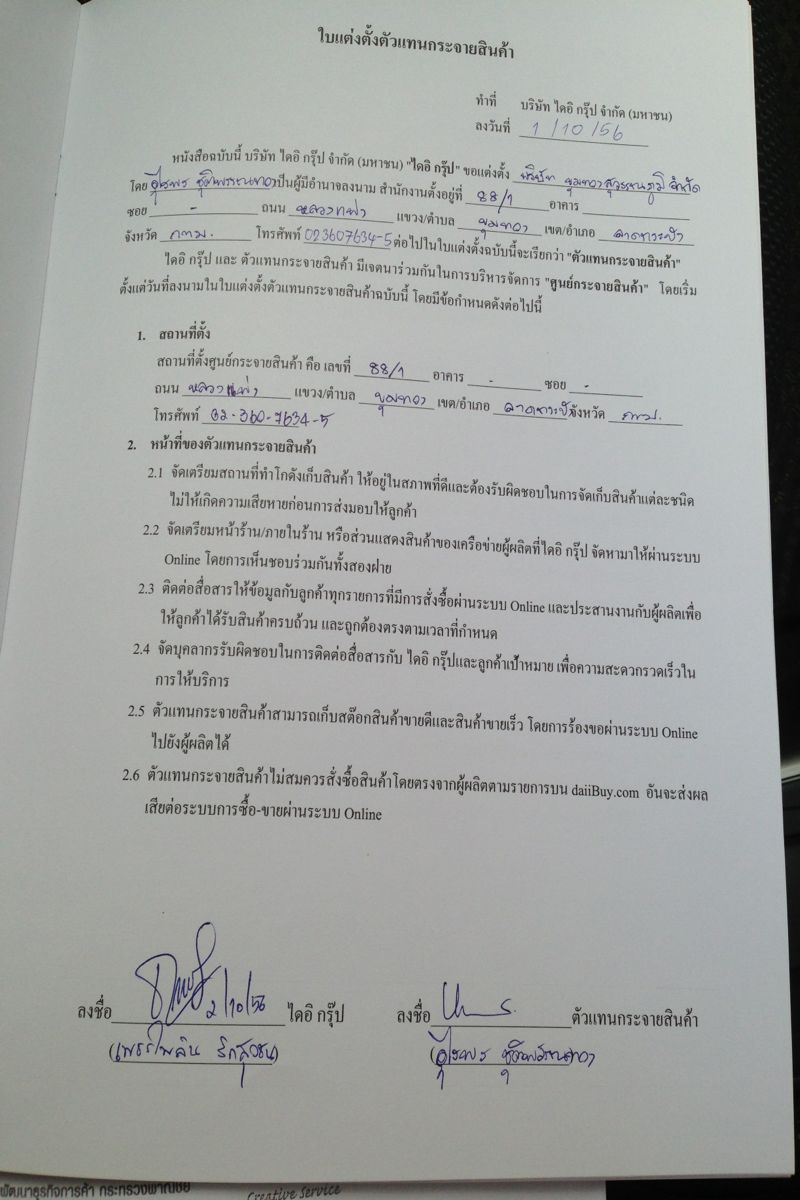 ใบแต่งตั้งตัวแทนกระจายสินค้า
ทำที่ บริษัท ไดอิ กรุ๊ป จำกัด (มหาชน)
ลงวันที่ 1/10/56
หนังสือฉบับนี้ บริษัท ไดอิ กรุ๊ป จำกัด (มหาชน) "ไดอิ กรุ๊ป" ขอแต่งตั้ง บริษัท ขุมทองสุวรรณภูมิ จำกัด
โดย เป็นผู้มีอำนาจลงนาม สำนักงานตั้งอยู่ที่ 88/1 อาคาร
ซอย - ถนน หลวงแพ่ง แขวง/ตำบล ขุมทอง เขต/อำเภอ ลาดกระบัง
จังหวัด กทม. โทรศัพท์ 023607634-5 ต่อไปในใบแต่งตั้งฉบับนี้จะเรียกว่า "ตัวแทนกระจายสินค้า"
ไดอิ กรุ๊ป และ ตัวแทนกระจายสินค้า มีเจตนาร่วมกันในการบริหารจัดการ "ศูนย์กระจายสินค้า" โดยเริ่ม
ตั้งแต่วันที่ลงนามในใบแต่งตั้งตัวแทนกระจายสินค้าฉบับนี้ โดยมีข้อกำหนดดังต่อไปนี้
1. สถานที่ตั้ง
สถานที่ตั้งศูนย์กระจายสินค้า คือ เลขที่ 88/1 อาคาร - ซอย -
ถนน หลวงแพ่ง แขวง/ตำบล ขุมทอง เขต/อำเภอ ลาดกระบัง จังหวัด กทม.
โทรศัพท์ 02-360-7634-5
2. หน้าที่ของตัวแทนกระจายสินค้า
2.1 จัดเตรียมสถานที่ทำโกดังเก็บสินค้า ให้อยู่ในสภาพที่ดีและต้องรับผิดชอบในการจัดเก็บสินค้าแต่ละชนิด
ไม่ให้เกิดความเสียหายก่อนการส่งมอบให้ลูกค้า
2.2 จัดเตรียมหน้าร้าน/ภายในร้าน หรือส่วนแสดงสินค้าของเครือข่ายผู้ผลิตที่ไดอิ กรุ๊ป จัดหามาให้ผ่านระบบ
Online โดยการเห็นชอบร่วมกันทั้งสองฝ่าย
2.3 ติดต่อสื่อสารให้ข้อมูลกับลูกค้าทุกรายการที่มีการสั่งซื้อผ่านระบบ Online และประสานงานกับผู้ผลิตเพื่อ
ให้ลูกค้าได้รับสินค้าครบถ้วน และถูกต้องตรงตามเวลาที่กำหนด
2.4 จัดบุคลากรรับผิดชอบในการติดต่อสื่อสารกับ ไดอิ กรุ๊ปและลูกค้าเป้าหมาย เพื่อความสะดวกรวดเร็วใน
การให้บริการ
2.5 ตัวแทนกระจายสินค้าสามารถเก็บสต๊อกสินค้าขายดีและสินค้าขายเร็ว โดยการร้องขอผ่านระบบ Online
ไปยังผู้ผลิตได้
2.6 ตัวแทนกระจายสินค้าไม่สมควรสั่งซื้อสินค้าโดยตรงจากผู้ผลิตตามรายการบน daiiBuy.com อันจะส่งผล
เสียต่อระบบการซื้อ-ขายผ่านระบบ Online
ลงชื่อ 2/10/56 ไดอิ กรุ๊ป ลงชื่อ ตัวแทนกระจายสินค้า
พัฒนาธุรกิจการค้า กระทรวงพาณิชย์ Creative Service